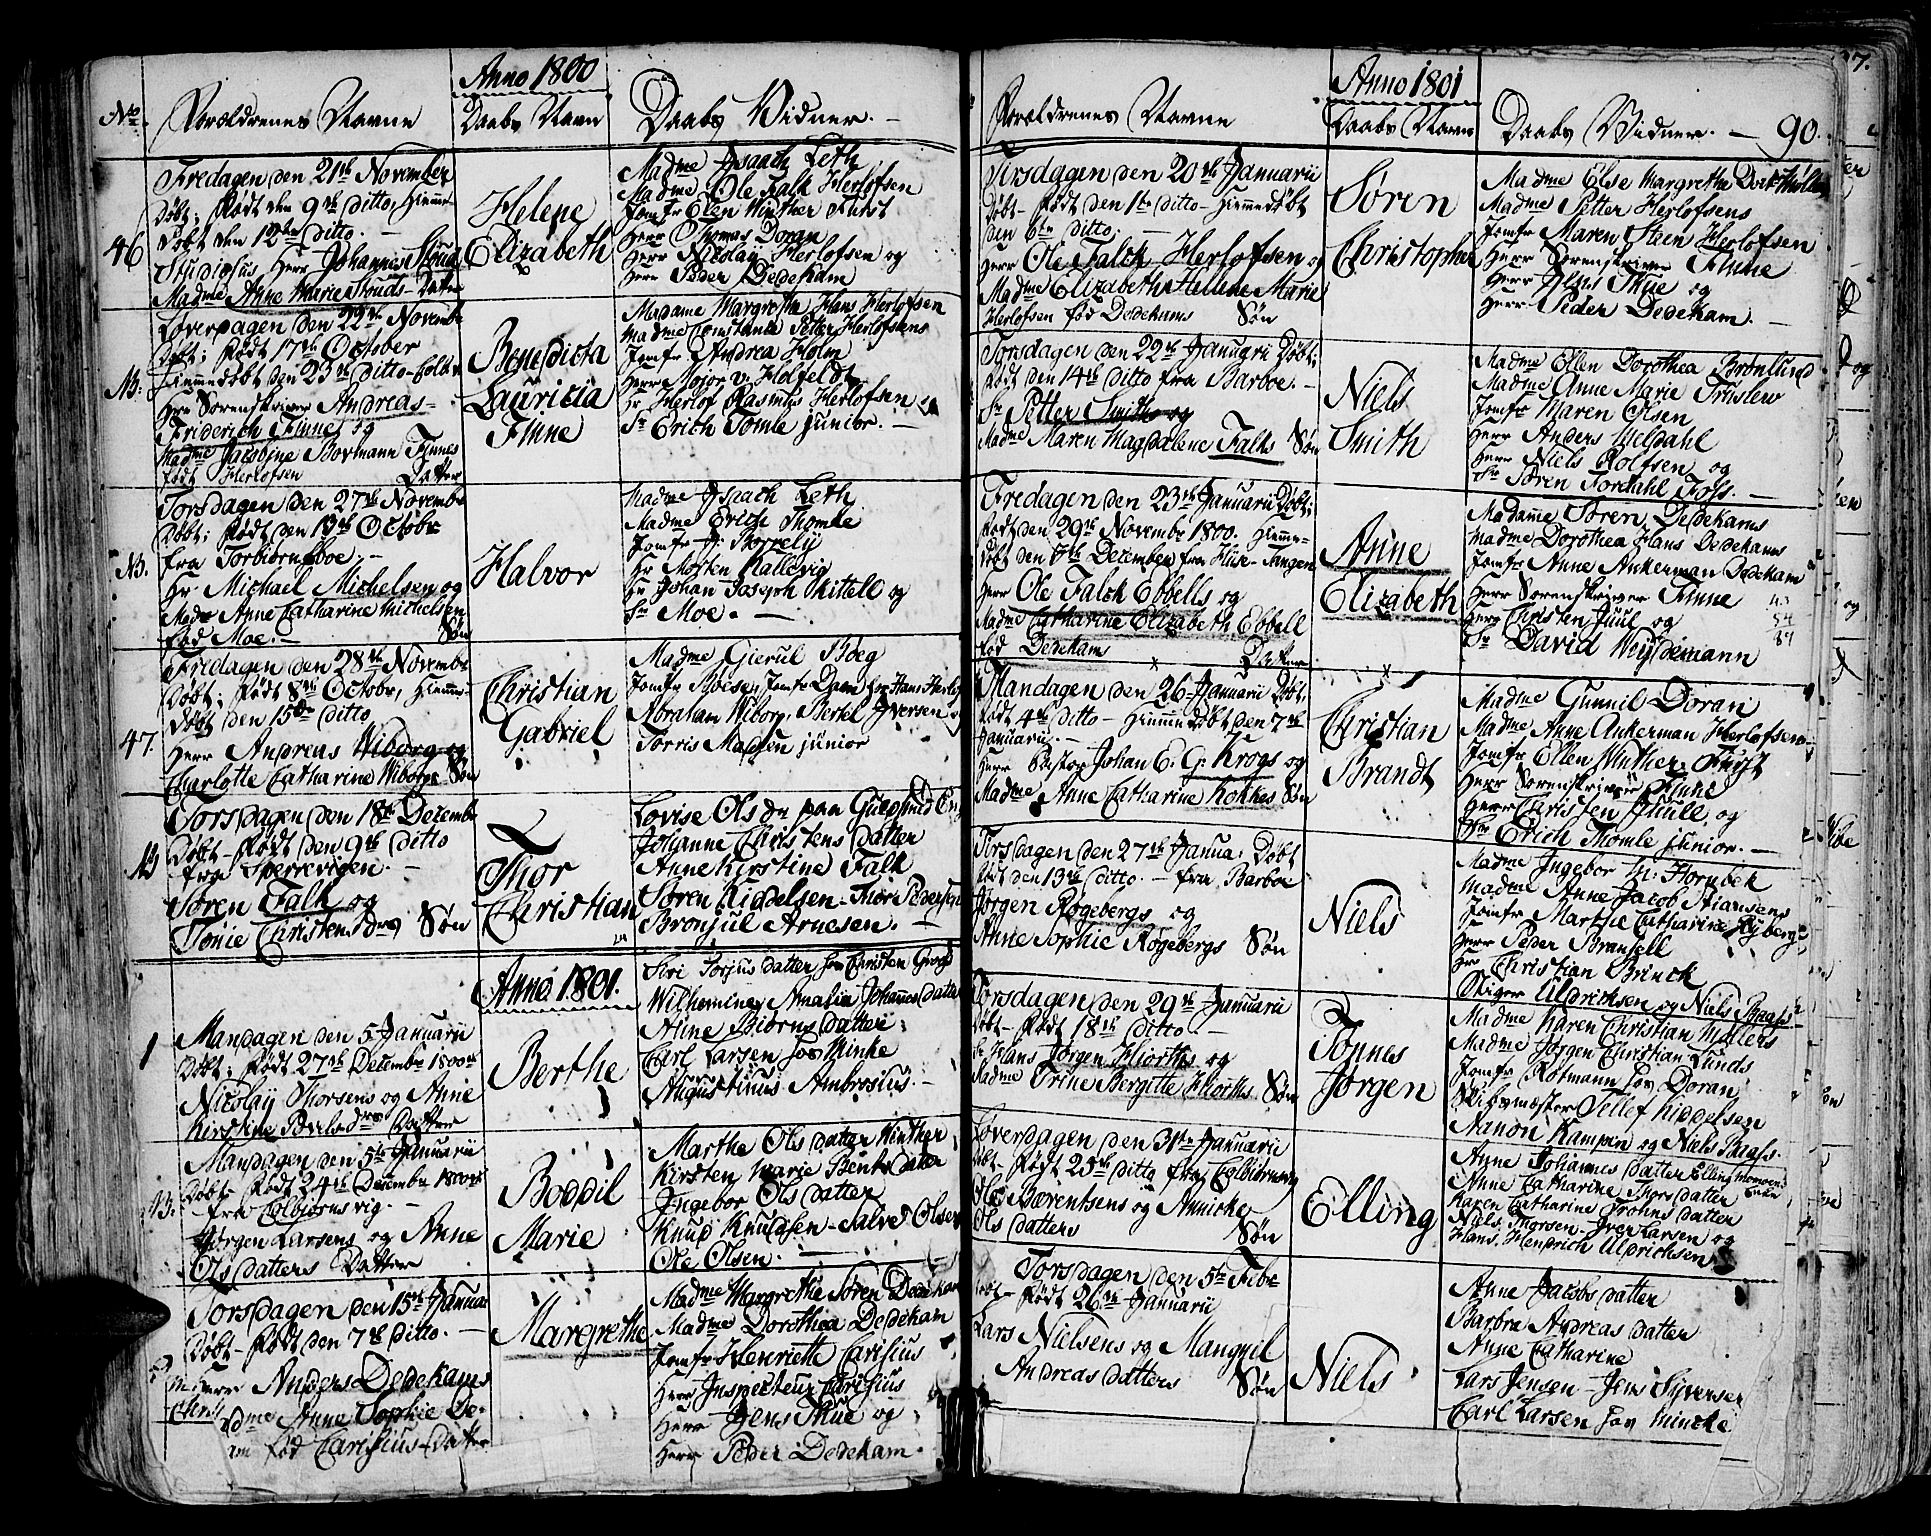 Anno 1800
No. Forældrenes Navne Daabs Navn Daabs Vidner.
46
Fredagen den 21de November
Døbt; Født den 9de ditto, Hiemme-
Døbt den 12te ditto.
Studiosus Herr Johannes Stoud
Madme Anne Marie Stouds Datter
Helene
Elizabeth
Madme Isaach Leth
Madme Ole Falk Herlofsen
Jomfr Elen Winther Furst
Herr Thomas Doran
Herr Nicolay Herlofsen og
Herr Peder Dedekam
N3.
Løverdagen den 22de Novembr
Døbt; Født 17de October
Hiemmedøbt den 23de ditto
Hrr Sorenskriver Andreas
Friderich Finnes og
Madme Jacobine Finnes
født Herlofsen Datter
Benedicta
Lauricia
Finne
Madame Margretha Hans Herlofsen
Madme Constance Petter Herlofsens
Jomfr Andrea Holm
Herr Major v. Hofeldt
Hr Herlof Rasmus Herlofsen
Sr Erich Tomle junior.
N3.
Torsdagen den 27de Novembr
Døbt; Født den 19de Octobr
fra Torbiørnsboe.
Hr. Michael Michelsen og
Madme Anne Catharine Michelsen
fød Moe. Søn
Halvor
Madme Isaach Leth
Madme Erich Thomle
Jomfr Borrely
Hr Morten Kallevig
Hr Johan Joseph Kittell og
Sr Moe.
47.
Fredagen den 28de Novembr
Døbt; Født 8de Octobr, Hiemme-
Døbt den 15de ditto
Herr Andreas Wiborg og
Charlotte Catharine Wiborgs Søn
Christian
Gabriel
Madme Gierul Boeg
Jomfr Boese, Jomfr Dam
Abraham Wiborg, Bertel Iversen
Torris Madsen junior
N3
Torsdagen den 18de Decembr
Døbt - Født den 9de ditto
fra Sperrevigen.
Søren Falk og
Tonie Christensdrs Søn
Thor
Christian
Lovise Olsdr paa
Johanne Christens datter
Anne Kirstine Falk
Søren Kiddelsen - Thor Pedersen
Bronjul Arnesen.
Anno 1801.
1
Mandagen den 5 Januarii
Døbt; Født 27de Decembr 1800
Nicolay Thorsens og Anne
Kirstine Datter
Berthe
Siri Torjus datter
Wilhemine Amalia Johannes datter
Anne Biørns datter
Carl Larsen hos Minke
Augustinus Ambrosius.
N3.
Mandagen den 5te Januarii
Døbt Født 24de Decembr 1800
fra Colbjørnsvig.
Jørgen Larsens og Anne
Ols datters Datter
Boddil
Marie
Marthe Ols datter Winther
Kirsten Marie Bents datter
Ingebor Ols datter
Knud Knudsen - Salve Olsen
Ole Olsen.
Torsdagen den 15de Januar
Døbt - Født den 7de ditto.
Herr Anders Dedekams
Madme Anne Sophie De-
fød Carisius Datter
Margrethe
Madme Margrethe Søren Dedekam
Madme Dorothea Dedekam
Jomfr Henriette Carisius
Herr Inspecteur Carisius
Herr Jens Thue og
Herr Peder Dedekam.
Anno 1801
Forældrenes Navne Daabs Navn Daabs Vidner. 90.
Tirsdagen den 20de Januarii
Døbt - Født den 1te ditto - Hiemmedøbt
den 6te ditto.
Herr Ole Falck Herlofsen og
Madme Elizabeth Hellene Marie
Herlofsen fød Dedekams Søn
Søren
Christopher
Madme Else Margrethe
Madme Petter Herlofsens
Jomfr Maren Steen Herlofsen
Herr Sorenskriver Finne
Herr Jens Thue og
Herr Peder Dedekam.
Torsdagen den 22de Januarii Døbt;
Født den 14de ditto fra Barboe.
Sr Petter Smiths og
Madme Maren Magdalene Falks Søn
Niels
Smith
Madme Ellen Dorothea Brønlund
Madme Anne Marie Truslew
Jomfr Maren Olsen
Herr Anders Meldahl
Herr Niels Rolfsen og
Sr Søren Fordahl Foss.
Fredagen den 23de Januarii Døbt;
Født den 29de Novembr 1800. Hiemme-
døbt den 6te December fra Huse-Tangen
Herr Ole Falck Ebbells og
Madme Catharine Elizabeth Ebbell
fød Dedekams Datter
Anne
Elizabeth
Madame Søren Dedekams
Madme Dorothea Hans Dedekams
Jomfr Anne Ankerman Dedekam
Herr Sorenskriver Finne
Herr Christen Juul og
Sr David Weydemann
43
54
89
Mandagen den 26 Januarii Døbt.
Født 4de ditto - Hiemmedøbt den 7de
Januarii.
Herr Pastor Johan E. G. Krogs og
Madme Anne Catharine Kokkes Søn
Christian
Brandt
Madme Gunnil Doran
Madme Anne Ankerman Herlofsen
Jomfr Ellen Winther Furst
Herr Sorenskriver Finne
Herr Christen Juull og
Sr Erich Thomle junior.
Torsdagen den 27de Janua. Døbt
Født den 13de ditto. - fra Barboe
Jørgen Røgebergs og
Anne Sophie Røgebergs Søn
Niels
Madme Ingebor Hornbek
Madme Anne Jacob Stiansens
Jomfr Marthe Catharine Ryberg
Herr Peder Bransell
Hr Christian Brinck
Stiger Uldriksen og Niels Baggs
Torsdagen den 29de Januarii
Døbt - Født 18de ditto
Sr Hans Jørgen Hiorths og
Madme Trine Bergitte Hiorths Søn
Tønnes
Jørgen
Madme Karen Christian Møllers
Madme Jørgen Christian Lunds
Jomfr Rotmann hos Doran
Skibsmester Tellef Kiddelsen
Aanon Kampen og Niels Baggs.
Løverdagen den 31te Januarii
Døbt - Født 25de ditto fra Colbiørnsvig
Ole Bærentsens og Annicke
Ols datters Søn
Elling
Anne Johannes datter
Anne Catharine Thors datter
Karen Catharine Grohns datter
Niels Thorsen - Iver Larsen og
Hans Hendrich Uldrichsen
Torsdagen den 5te Febr
Døbt - Født 26de Januarii
Lars Nielsens og Mangnil
Andreas datters Søn
Niels
Anne Jacobs datter
Barbra Andreas datter
Anne Catharine
Lars Jensen - Jens Syversen
Carl Larsen hos Mincke